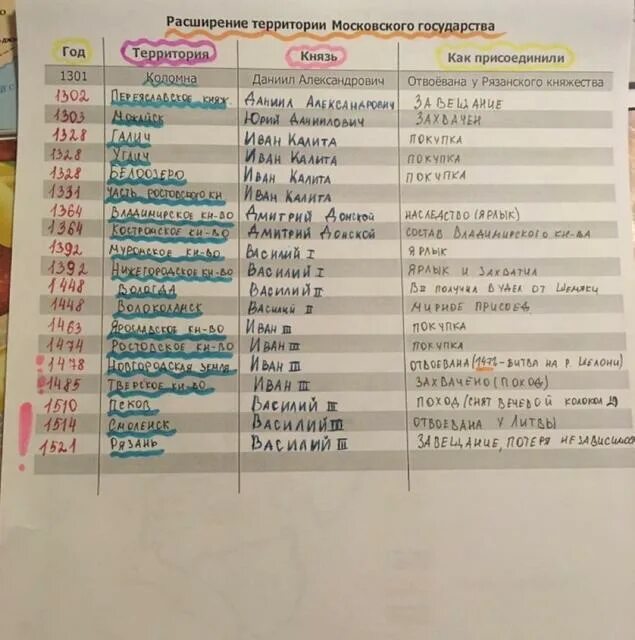 Расширение территории Московского государства
Год Территория Князь Как присоединили
1301 Коломна Даниил Александрович Отвоёвана у Рязанского княжества
1302 Переяславское княж. Даниил Александрович Завещание
1303 Можайск Юрий Даниилович Захвачен
1328 Галич Иван Калита покупка
1328 Углич Иван Калита покупка
1328 Белоозеро Иван Калита покупка
1331 Часть Ростовского кн Иван Калита
1364 Владимирское кн-во Дмитрий Донской наследство (ярлык)
1364 Костромское кн-во Дмитрий Донской состав Владимирского кн-ва
1392 Муромское кн-во Василий I ярлык
1392 Нижегородское кн-во Василий I ярлык и захватил
1448 Вологда Василий II получил в удел от Шемяки
1448 Волоколамск Василий II мирное присоед.
1463 Ярославское кн-во Иван III покупка
1474 Ростовское кн-во Иван III покупка
1478 Новгородская земля Иван III отвоевана (1471-битва на р. Шелони)
1485 Тверское кн-во Иван III захвачено (поход)
1510 Псков Василий III поход/снят вечевой колокол
1514 Смоленск Василий III отвоевана у Литвы
1521 Рязань Василий III завещание, потеря